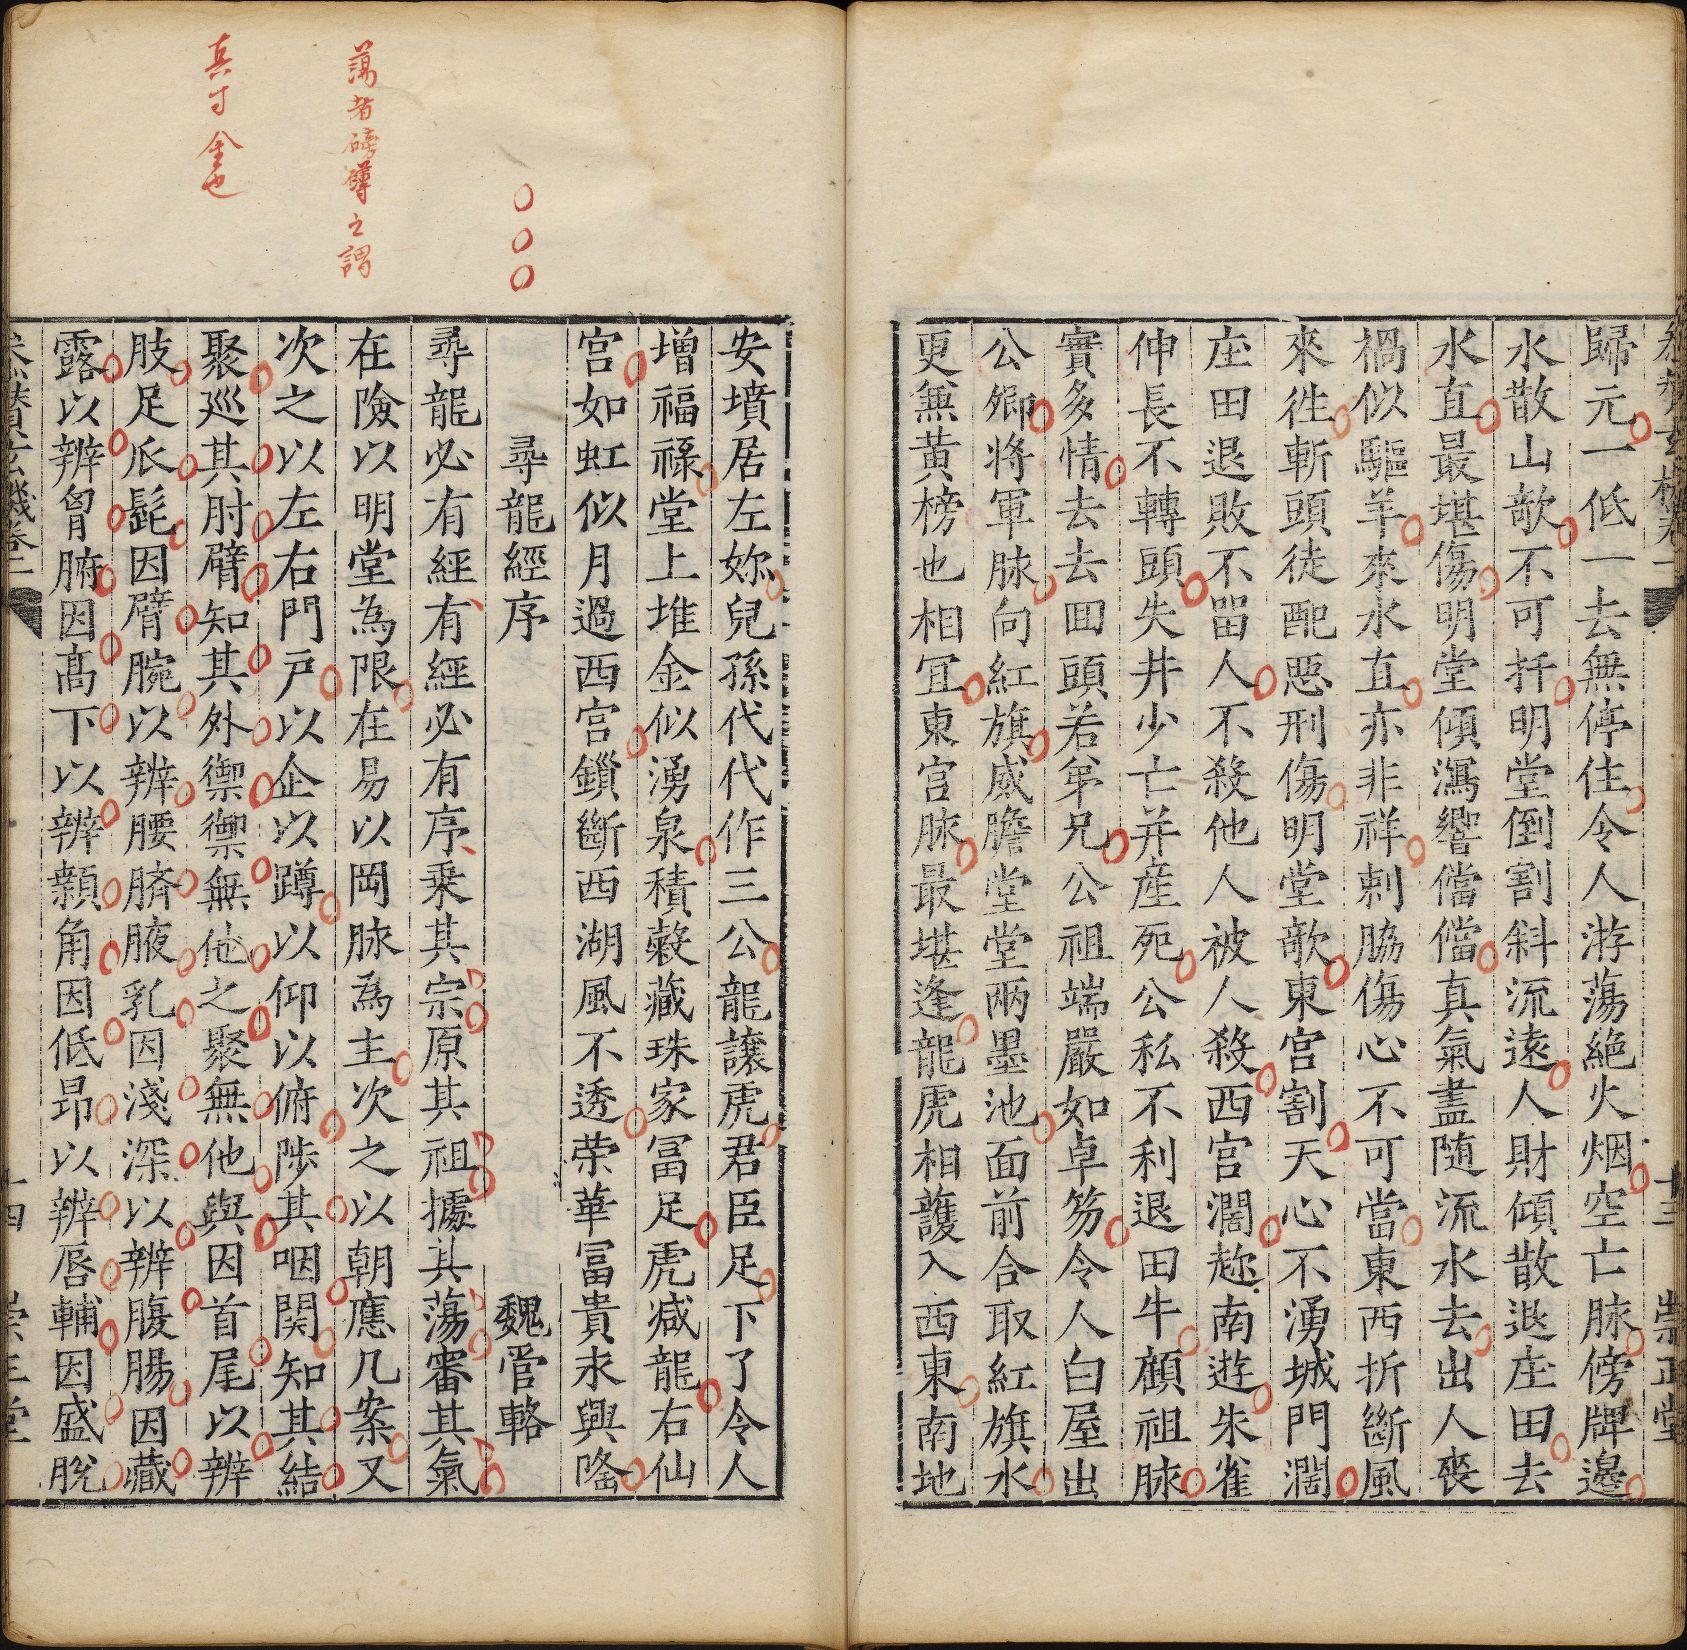 歸元一低一去無停住令人游蕩絶火烟空亡脉傍牌邊
水散山欹不可扦明堂倒割斜流遠人財傾散退庄田去
水直最堪傷明堂傾瀉響儅儅真氣盡随流水去出人喪
禍似驅羊來水直亦非祥刺脇傷心不可當東西折斷風
來徃斬頭徒配惡刑傷明堂欹東宫割天心不湧城門濶
庄田退敗不留人不殺他人被人殺西宫濶趂南遊朱雀
伸長不轉頭失井少亡并産死公私不利退田牛顧祖脉
實多情去去囬頭若弟兄公祖端嚴如卓笏令人白屋出
公卿將軍脉向紅旗威膽堂堂兩墨池面前合取紅旗水
更無黄榜也相冝東宫脉最堪逢龍虎相護入西東南地
十三
崇正堂
安墳居左妳兒孫代代作三公龍讓虎君臣足下了令人
增福祿堂上堆金似湧泉積糓藏珠家冨足虎减龍右仙
宫如虹似月過西宫鎻斷西湖風不透荣華冨貴求興隆
尋龍經序
魏管輅
尋龍必有經有經必有序乗其宗原其祖據其蕩審其氣
在險以明堂為限在易以岡脉為主次之以朝應几案又
次之以左右門戸以企以蹲以仰以俯陟其咽関知其結
聚廵其肘臂知其外禦禦無他之聚無他與因首尾以辨
肢足爪髭因臂腕以辨腰臍腋乳因淺深以辨腹腸因藏
露以辨胷腑因髙下以辨顙角因低昂以辨唇輔因盛脫
十四
崇正堂
蕩者磅礴之謂
真寸金也